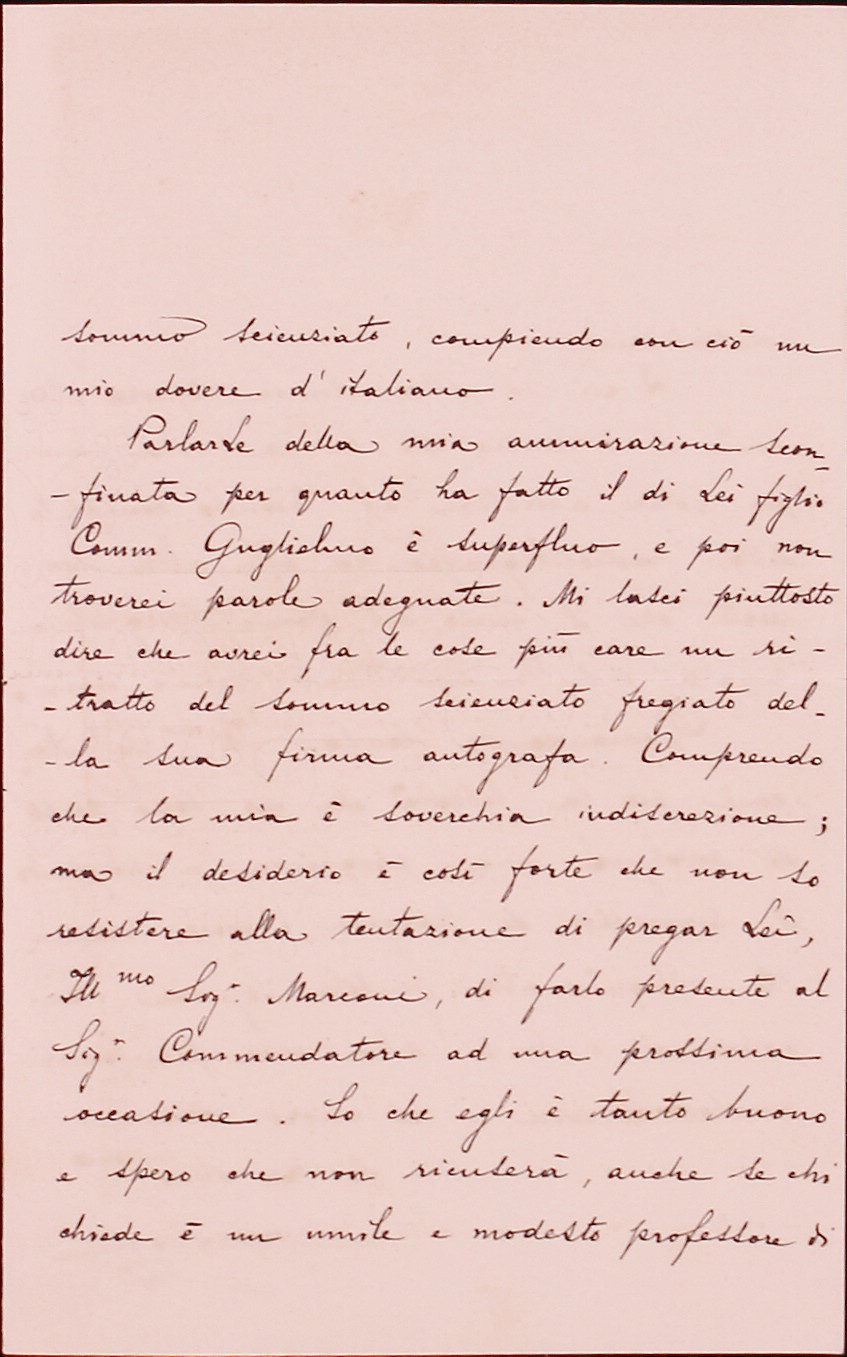 sommo scienziato, compiendo con ciò un
mio dovere d'italiano.
ParlarLe della mia ammirazione scon-
-finata per quanto ha fatto il di Lei figlio
Comm. Guglielmo è superfluo, e poi non
troverei parole adeguate. Mi lasci piuttosto
dire che avrei fra le cose più care un ri-
-tratto del sommo scienziato fregiato del-
-la sua firma autografa. Comprendo
che la mia è soverchia indiscrezione;
ma il desiderio è così forte che non so
resistere alla tentazione di pregar Lei,
Ill mo Sigr. Marconi, di farlo presente al
Sigr. Commendatore ad una prossima
occasione. So che egli è tanto buono
e spero che non ricuserà, anche se chi
chiede è un umile e modesto professore di